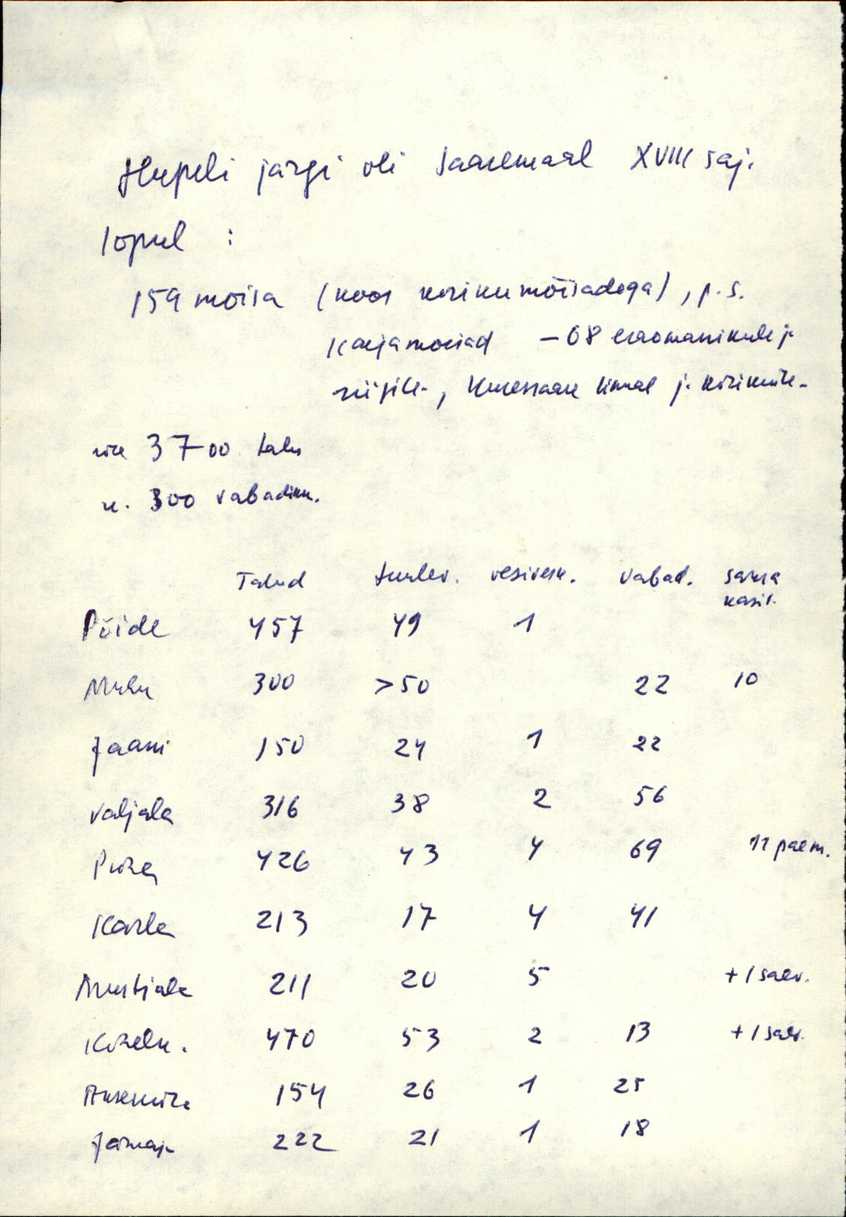 Hupeli järgi oli Saaremaal XVIII saj.
lõpul :
159 mõisa (koos kirikumõisadega), p.s.
Karjamõisad – 68 eraomanikule j.
riigile, Kuressaare linnal j. kirikule.
üle 3700 talu
u. 300 vabadiku.
Talud tuulev. vesivesk. vabad. saksa
käsit.
Pöide 457 49 1
Muhu 300 >50 22 10
Jaani 150 24 1 22
Valjala 316 38 2 56
Püha 426 43 4 69 11 paem.
Karla 213 17 4 41
Mustjala 211 20 5 + 1 saev.
Kihelk. 470 53 2 13 + 1 saev.
Anseküla 154 26 1 25
Jämaja 222 21 1 18